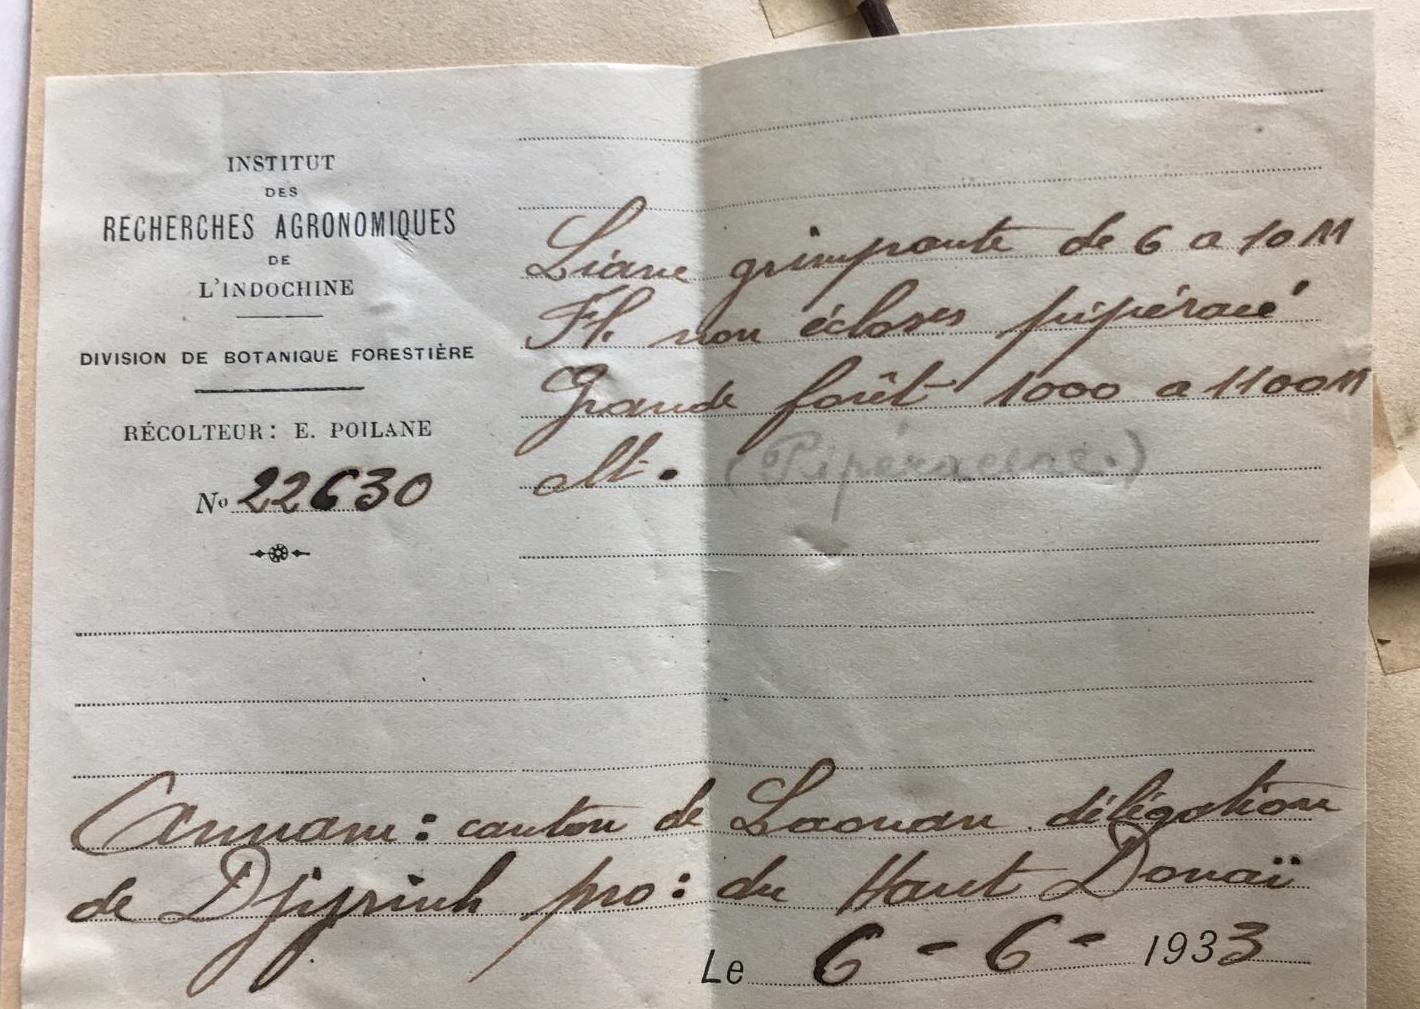 INSTITUT
DES
RECHERCHES AGRONOMIQUES
DE
L'INDOCHINE
DIVISION DE BOTANIQUE FORESTIÈRE
RÉCOLTEUR : E. POILANE
No 22630
Liane grimpante de 6 a 10 M
Fl. non écloses pipéracé
Grande forêt 1000 a 1100 M
alt. (Pipéraceae.)
Annam : canton de Laouan délégation
de Djiring pro : du Haut Donaï
Le 6 - 6 - 1933